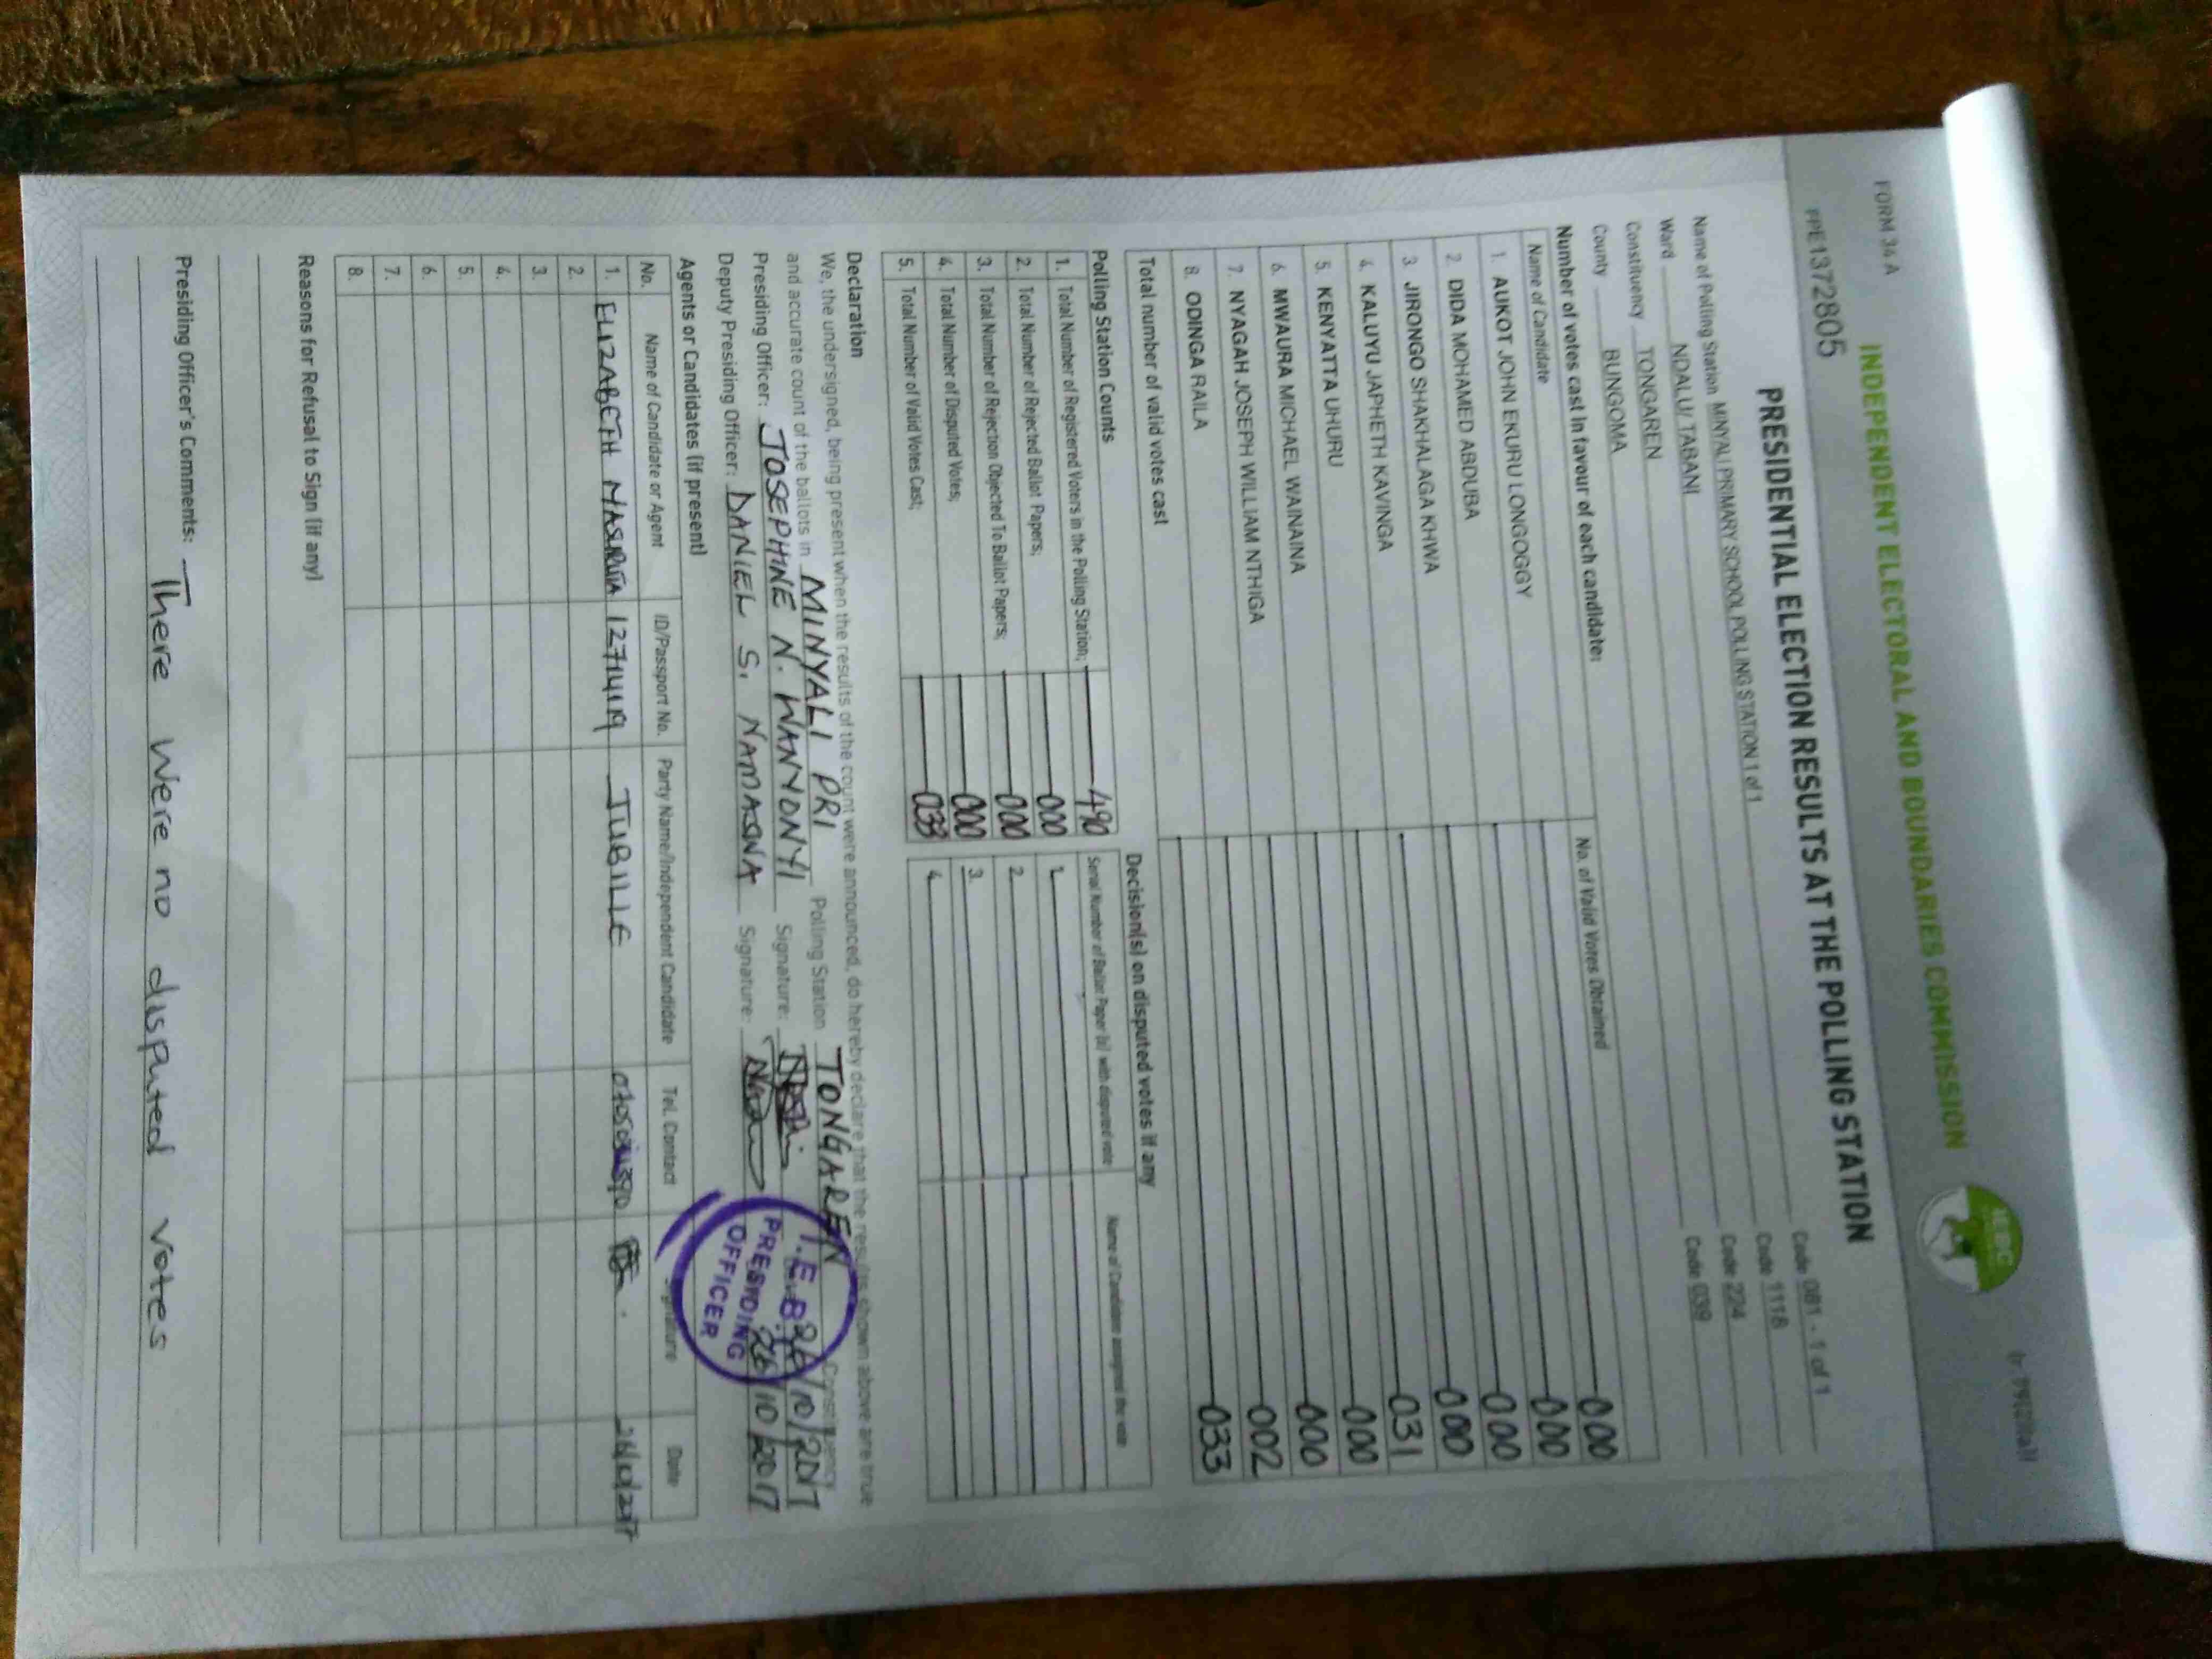 FORM 34 A
INDEPENDENT ELECTORAL AND BOUNDARIES COMMISSION
IEBC
PPE1372805
PRESIDENTIAL ELECTION RESULTS AT THE POLLING STATION
Name of Polling Station MINYALI PRIMARY SCHOOL POLLING STATION 1 of 1 Code 081 - 1 of 1
Ward NDALU/ TABANI Code 1118
Constituency TONGAREN Code 224
County BUNGOMA Code 039
Number of votes cast in favour of each candidate:
Name of Candidate No. of Valid Votes Obtained
1. AUKOT JOHN EKURU LONGOGGY 000
2. DIDA MOHAMED ABDUBA 000
3. JIRONGO SHAKHALAGA KHWA 000
4. KALUYU JAPHETH KAVINGA 000
5. KENYATTA UHURU 031
6. MWAURA MICHAEL WAINAINA 000
7. NYAGAH JOSEPH WILLIAM NTHIGA 000
8. ODINGA RAILA 002
Total number of valid votes cast 033
Polling Station Counts Decision(s) on disputed votes if any
1. Total Number of Registered Voters in the Polling Station; 490 Serial Number of Ballot Paper (s) with disputed vote Name of Candidate assigned the vote
2. Total Number of Rejected Ballot Papers; 000 1.
3. Total Number of Rejection Objected To Ballot Papers; 000 2.
4. Total Number of Disputed Votes; 000 3.
5. Total Number of Valid Votes Cast; 033 4.
Declaration
We, the undersigned, being present when the results of the count were announced, do hereby declare that the results shown above are true
and accurate count of the ballots in MINYALI PRI Polling Station TONGAREN Constituency
Presiding Officer: JOSEPHINE N. WANYONYI Signature: 26/10/2017
Deputy Presiding Officer: DANIEL S. NAMASWA Signature: 26/10/2017
PRESIDING
OFFICER
Agents or Candidates (if present)
No. Name of Candidate or Agent ID/Passport No. Party Name/Independent Candidate Tel. Contact Signature Date
1. ELIZABETH JUBILLE 26/10/2017
2.
3.
4.
5.
6.
7.
8.
Reasons for Refusal to Sign (if any)
Presiding Officer's Comments: There were no disputed votes